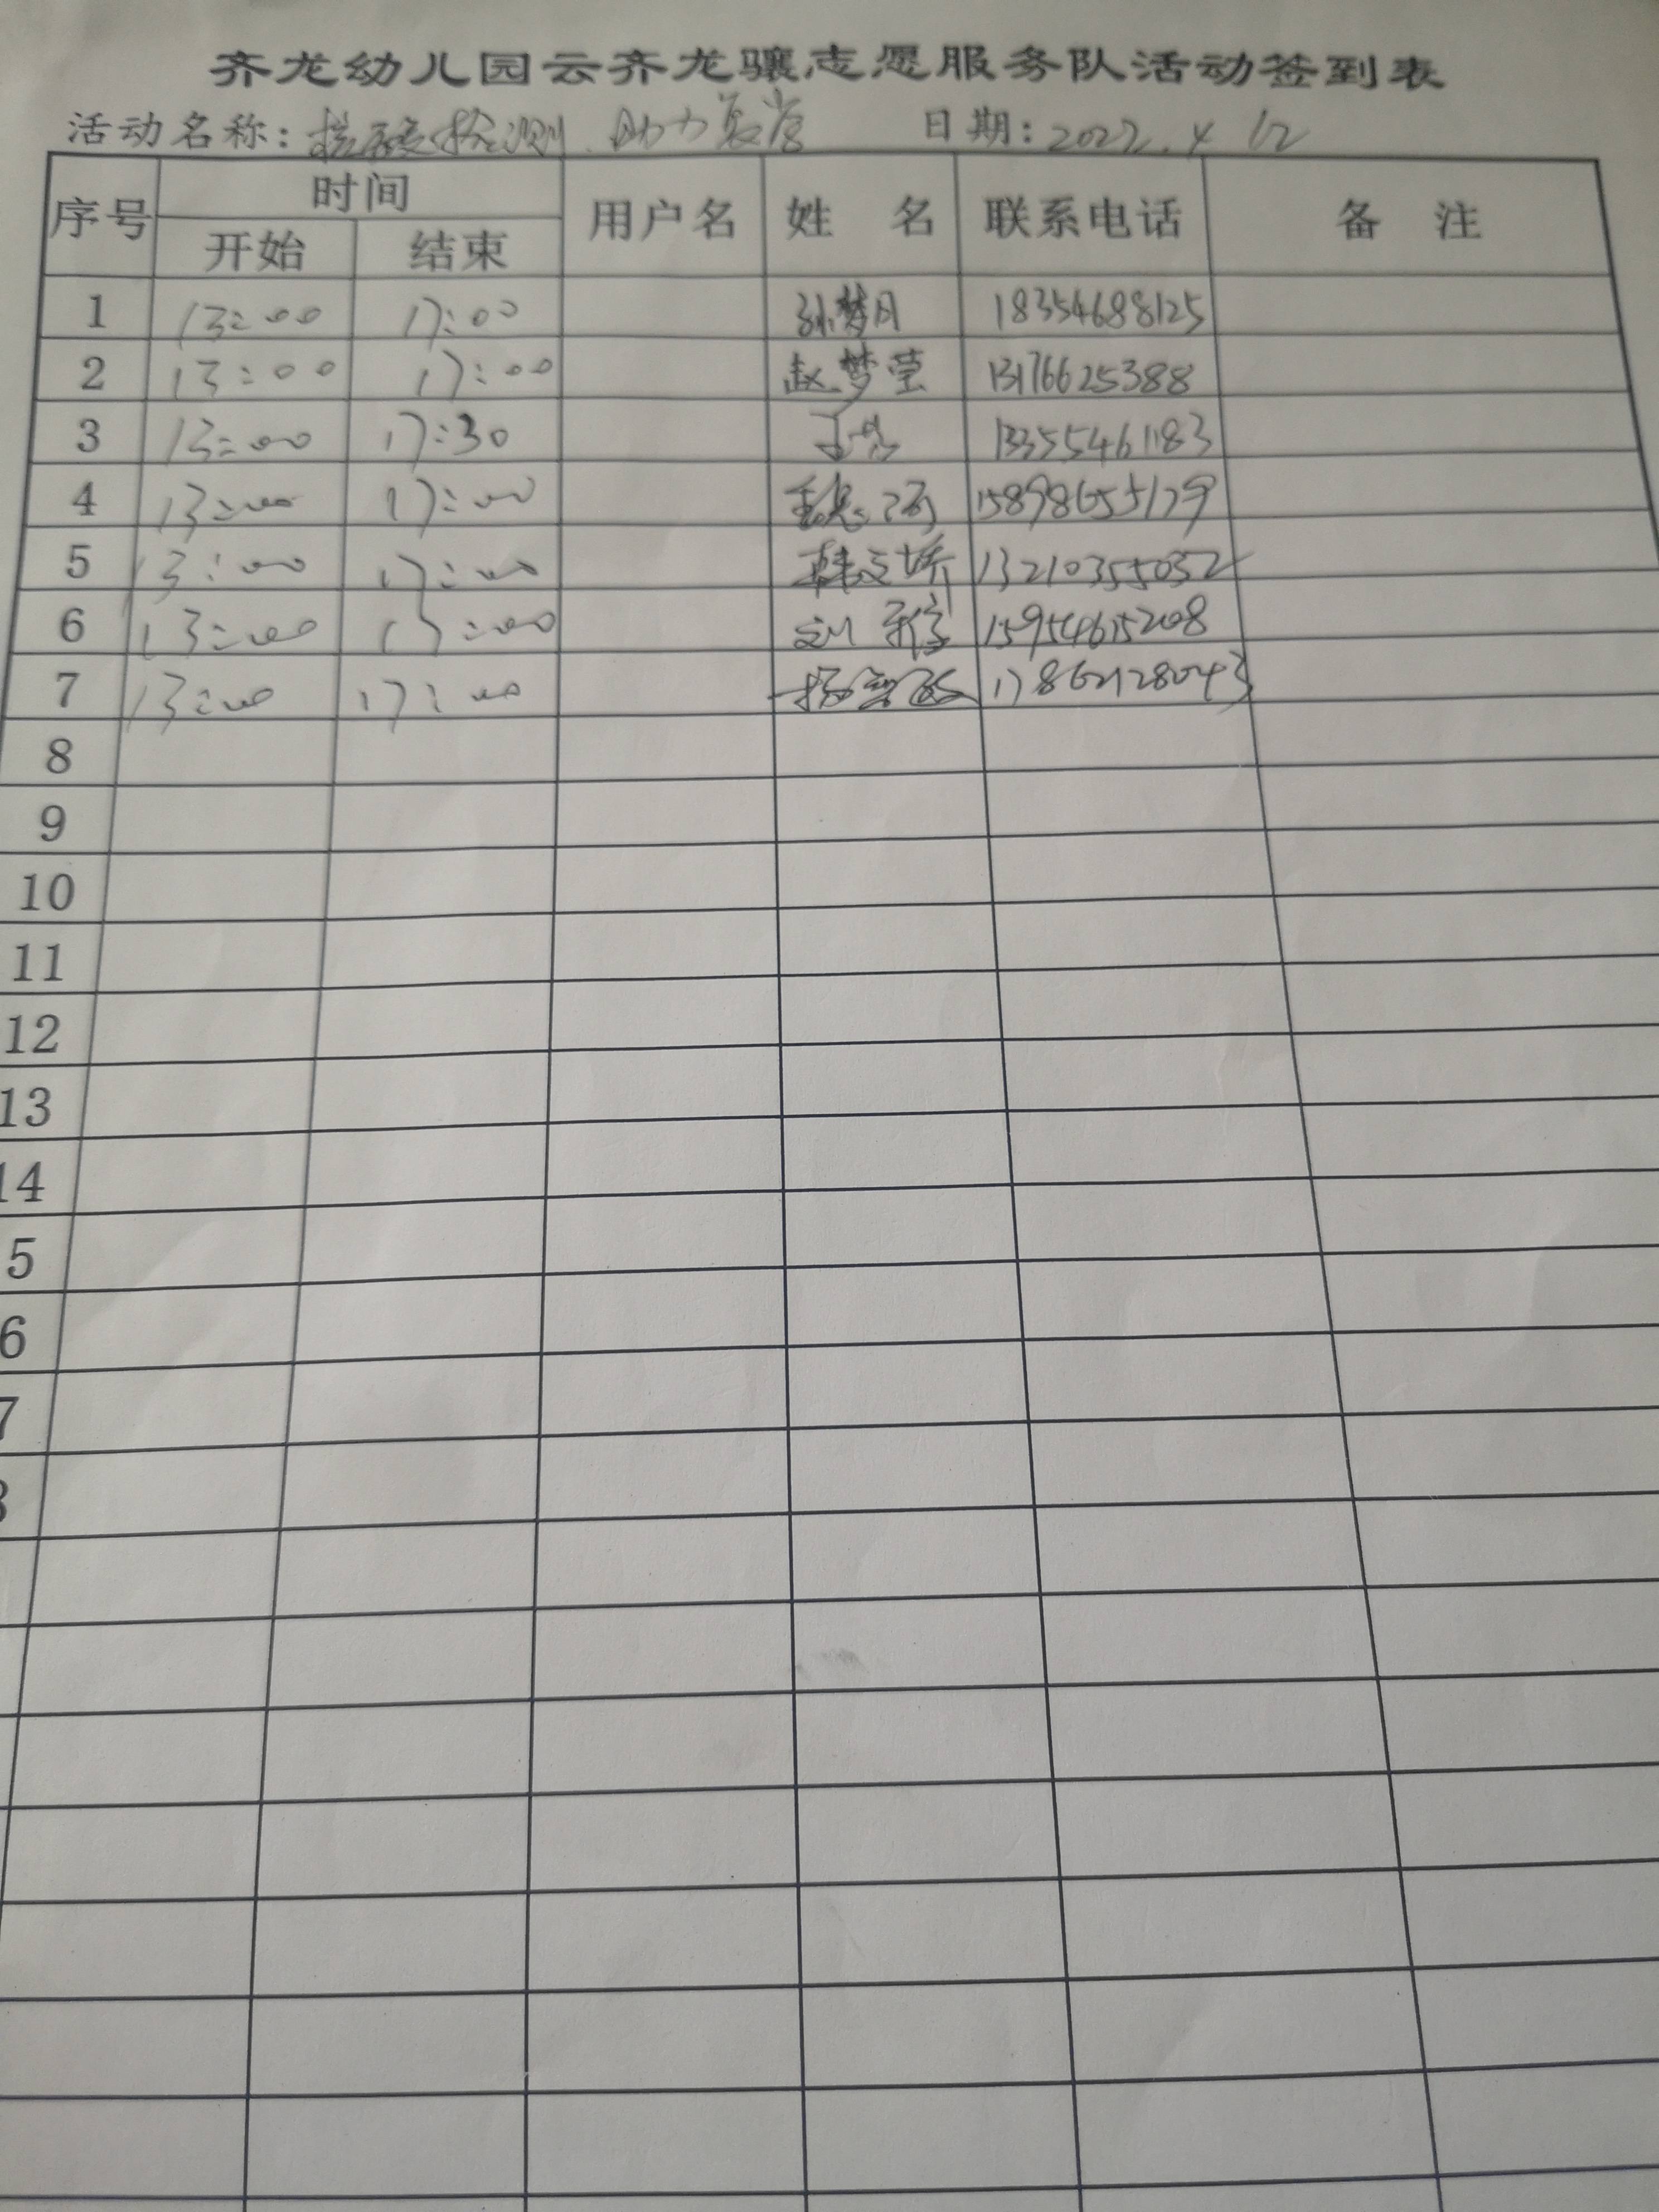 齐龙幼儿园云齐龙骧志愿服务队活动签到表
活动名称：核酸检测 助力复学 日期：2022.4 12
序号 时间 用户名 姓 名 联系电话 备 注
开始 结束
1 13:00 17:00 孙梦月 18354688125
2 13:00 17:00 赵梦莹 13176625388
3 13:00 17:30 13355461183
4 13:00 17:00 15898655179
5 13:00 17:00 韩文娇 13210355032
6 13:00 17:00 刘 15954615208
7 13:00 17:00 杨 17862128043
8
9
10
11
12
13
14
5
6
7
8